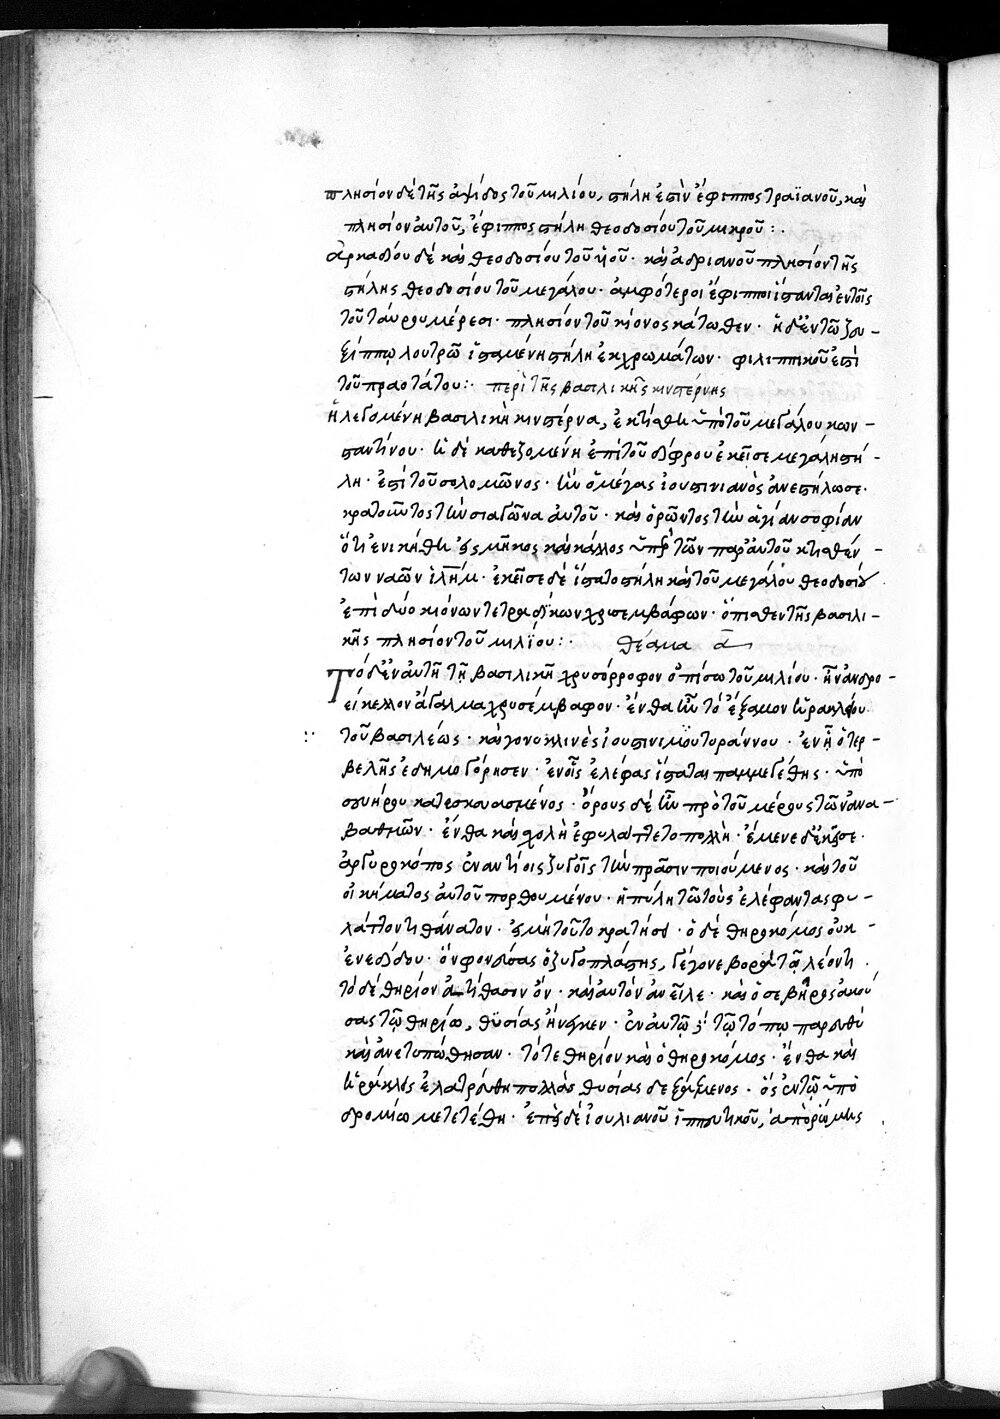 πλησίον δὲ τῆς ἁψίδος τοῦ μιλίου, στήλη ἐστὶν ἔφιππος τραϊανοῦ, καὶ
πλησίον αὐτοῦ, ἔφιππος στήλη θεοδοσίου τοῦ μικροῦ :.
ἀρκαδίου δὲ καὶ θεοδοσίου τοῦ ὑοῦ · καὶ ἀδριανοῦ πλησίον τῆς
στήλης θεοδοσίου τοῦ μεγάλου · ἀμφότεροι ἔφιπποι ἵσταντο ἐν τοῖς
τοῦ ταύρου μέρεσι · πλησίον τοῦ κίονος κάτωθεν · ἡ δὲ ἐν τῶ ζευ-
ξίππῳ λουτρῶ ἱσταμένη στήλη ἐκ χρωμάτων · φιλιππικοῦ ἐστὶ
τοῦ πραοτάτου :· περὶ τῆς βασιλικῆς κινστέρνης
ἡ λεγομένη βασιλικὴ κινστέρνα, ἐκτίσθη ὑπὸ τοῦ μεγάλου κων-
σταντίνου · ἡ δὲ καθεζομένη ἐπὶ τοῦ δίφρου ἐκεῖσε μεγάλη στή-
λη · ἐστὶ τοῦ σολομῶνος · ἣν ὁ μέγας ἰουστινιανὸς ἀνεστήλωσε ·
κρατοῦντος τὴν σιαγῶνα αὐτοῦ · καὶ ὁρῶντος τὴν ἁγίαν σοφίαν
ὅτι ἐνικήθη εἰς μῆκος καὶ κάλλος ὑπὲρ τῶν παρ' αὐτοῦ κτισθέν-
των ναῶν ἱλὴμ · ἐκεῖσε δὲ ἵστατο στήλη καὶ τοῦ μεγάλου θεοδοσίου
ἐπὶ δύο κιόνων τετραδίκων χρυσεμβάφων · ὄπισθεν τῆς βασιλι-
κῆς πλησίον τοῦ μιλίου :· θέαμα α
Τὸ δὲ ἐν αὐτῆ τῆ βασιλικῆ χρυσόρροφον ὀπίσω τοῦ μιλίου · ἦν ἀνδρο-
είκελλον ἄγαλμα χρυσέμβαφον · ἔνθα ἦν τὸ ἔξαμον ἡρακλείου
τοῦ βασιλέως · καὶ γονυκλινὲς ἰουστινιανοῦ τυράννου · ἐν ᾗ ὁ τερ-
βελῆς ἐδημογόρησεν · ἐν οἷς ἐλέφας ἵσταται παμμεγέθης · ὑπὸ
σευήρου κατεσκευασμένος · ὄρους δὲ ἦν πρὸ τοῦ μέρους τῶν ἀνα-
βαθμῶν · ἔνθα καὶ σχολὴ ἐφυλάττετο πολλὴ · ἔμενε δὲ ἐκεῖσε
ἀργυροκόπος ἐν ἀντίοις ζυγοῖς τὴν πρᾶσιν ποιούμενος · καὶ τοῦ
οἰκήματος αὐτοῦ πορθουμένου · ἠπείλη τῶ τοὺς ἐλέφαντας φυ-
λάττοντι θάνατον · εἰ μὴ τοῦτο κρατήσει · ὁ δὲ θηροκόμος οὐκ-
ἐνεδίδου · ὃν φονεύσας ὁ ζυγοπλάστης, γέγονε βορὰ τῶ λέοντι ·
τὸ δὲ θηρίον ἀτίθασον ὂν · καὶ αὐτὸν ἀνεῖλε · καὶ ὁ σεβῆρος ἀκού
σας τῶ θηρίῳ, θυσίας ἤνεγκεν · ἐν αὐτῶ τῶ τόπῳ παρευθὺ
καὶ ἀνετυπώθησαν · τό τε θηρίον καὶ ὁ θηροκόμος · ἔνθα καὶ
ἡρακλῆς ἐλατρεύθη πολλὰς θυσίας δεξάμενος · ὃς ἐν τῶ ἱππο
δρομίῳ μετετέθη · ἐπὶ δὲ ἰουλιανοῦ ὑπατικοῦ, ἀπὸ ῥώμης